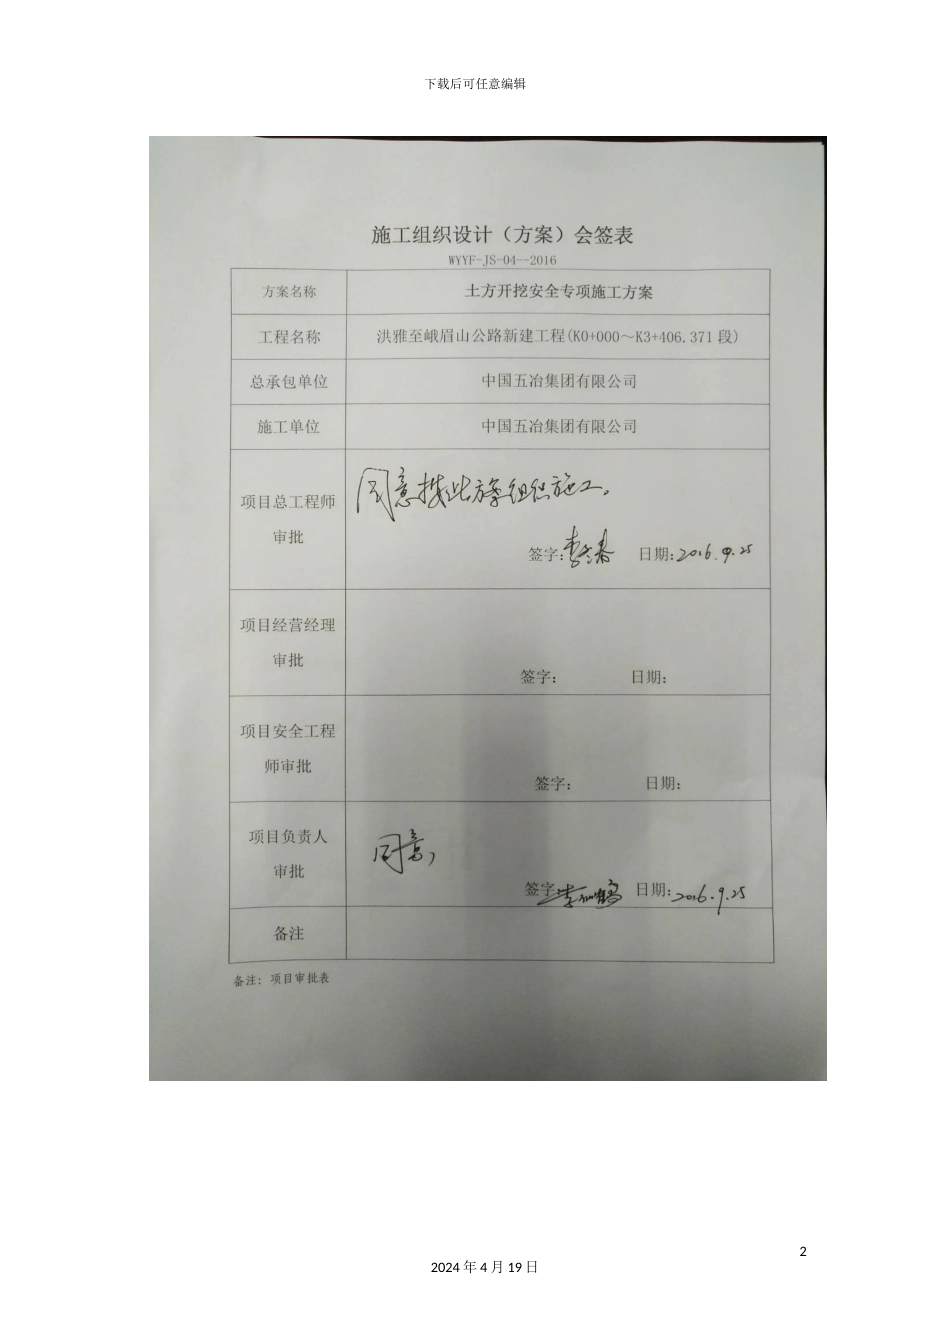 下载后可任意编辑
施工组织设计（方案）会签表
WYYF-JS-04--2016
方案名称 土方开挖安全专项施工方案
工程名称 洪雅至峨眉山公路新建工程(K0+000～K3+406.371 段)
总承包单位 中国五冶集团有限公司
施工单位 中国五冶集团有限公司
项目总工程师
审批
同意按此方案组织施工。
签字: 日期: 2016.9.25
项目经营经理
审批
签字: 日期:
项目安全工程
师审批
签字: 日期:
项目负责人
审批
同意,
签字 李仙鹤 日期: 2016.9.25
备注
备注: 项目审批表
2
2024 年 4 月 19 日